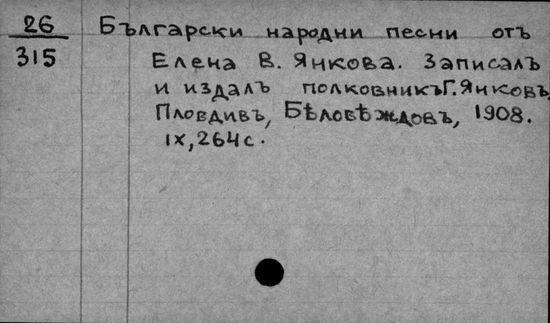 26
315
Български народни песни отъ
Елена В. Янкова. Записалъ
и издалъ полковникъ Г. Янковъ,
Пловдивъ, Бѣловѣждовъ, 1908.
IX, 264 с.